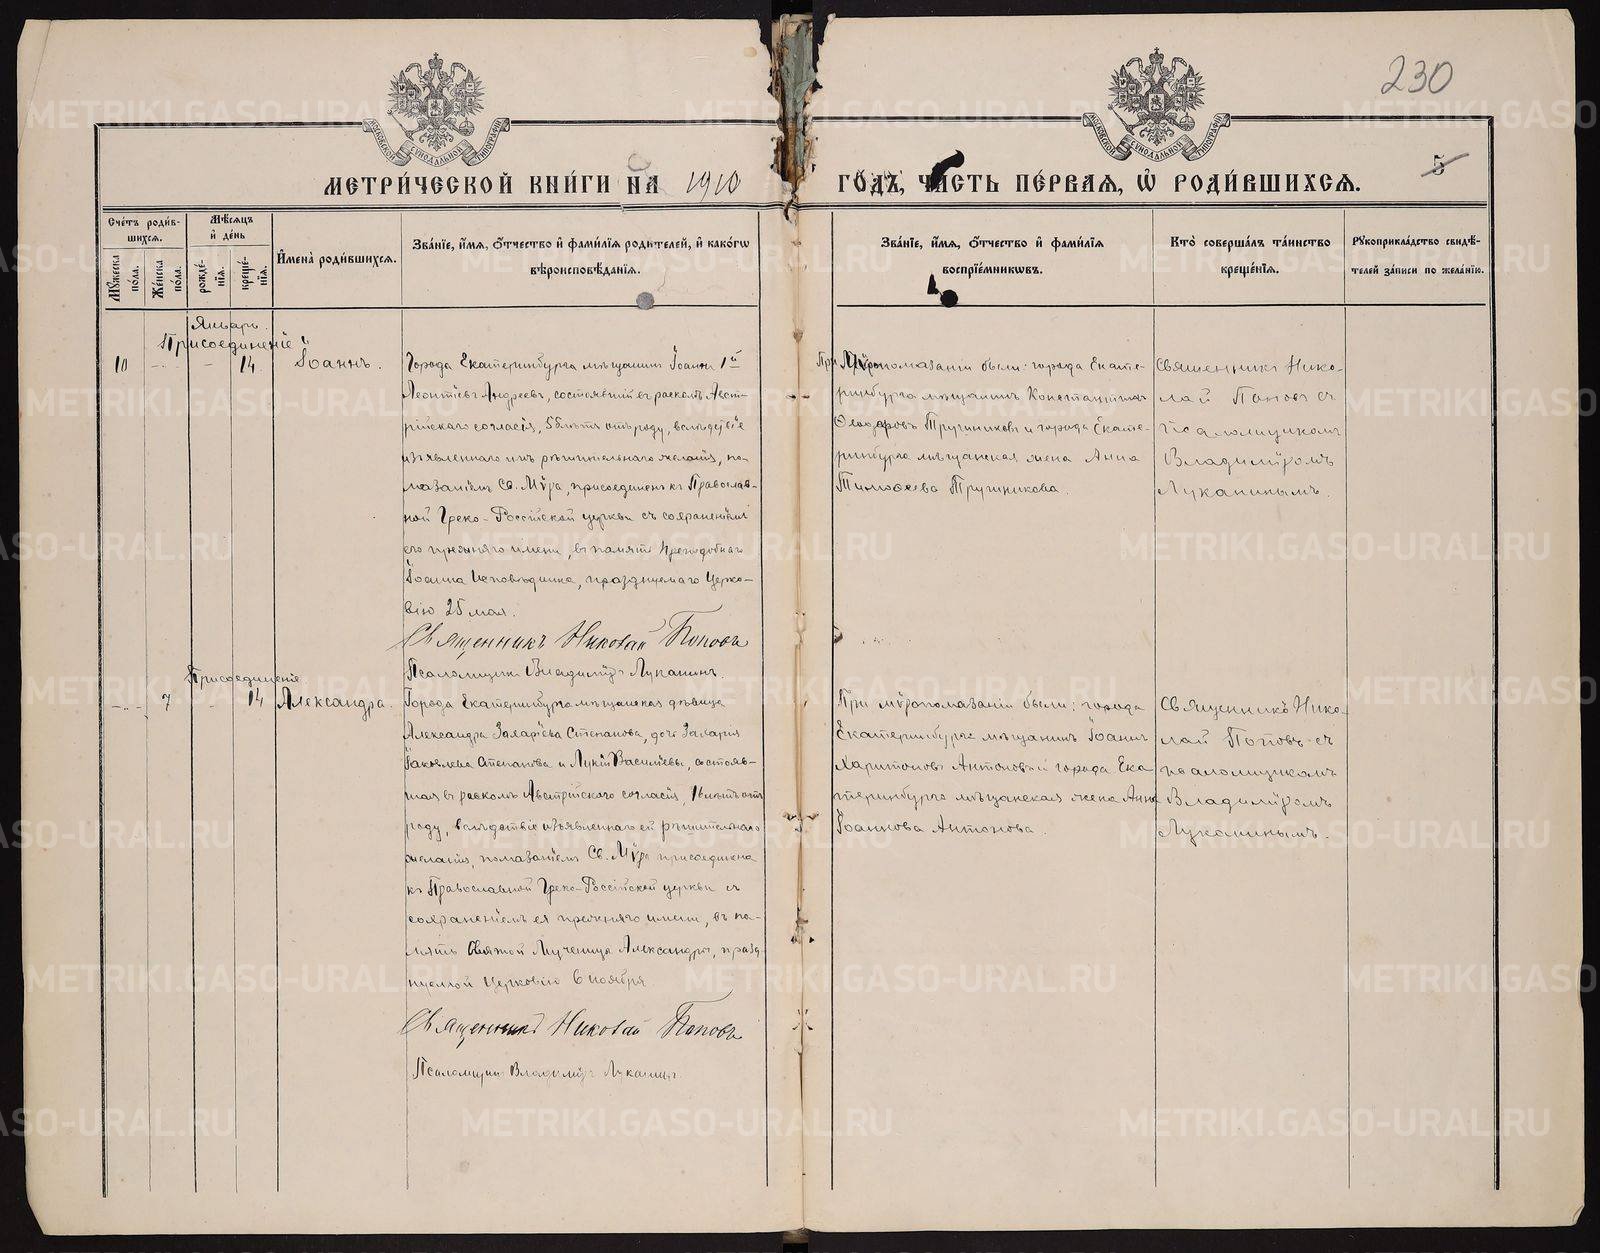 230
МОСКОВСКОЙ СѴНОДАЛЬНОЙ ТИПОГРАФІИ
МОСКОВСКОЙ СѴНОДАЛЬНОЙ ТИПОГРАФІИ
МЕТРИ́ЧЕСКОЙ КНИ́ГИ НА 1910
ГОДЪ, ЧАСТЬ ПЕ́РВАЯ, Ѡ РОДИ́ВШИХСЯ.
5
Сче́тъ роди́в-
шихся.
Мѣсяцъ
и́ де́нь
Мꙋжеска по́ла.
Же́нска по́ла.
рожде́-
нїя.
креще́-
нїя.
И҆мена̀ роди́вшихся.
Зва́нїе, и҆́мя, ѻ҆́тчество и҆ фами́лїя роди́телей, и҆ како́гѡ
вѣроисповѣ́данїя.
Зва́нїе, и҆́мя, ѻ҆́тчество и҆ фами́лїя
воспрїе́мникѡвъ.
Кто̀ соверша́лъ та́инство
креще́нїя.
Рꙋкоприкла́дство свидѣ́-
телей за́писи по жела́нїю.
Январь.
Присоединеніе
10
14
Іоаннъ.
Города Екатеринбурга мѣщанинъ Іоаннъ 1й
Леонтіевъ Андреевъ, состоявшій въ расколѣ Авст-
рійскаго согласія, лѣтъ отъ роду, вслѣдствіе
изъявленнаго имъ рѣшительнаго желанія, по-
мазаніемъ Св. Мѵра, присоединенъ къ Православ-
ной Греко-Россійской церкви съ сохраненіемъ
его прежняго имени, въ память Преподобнаго
Іоанна Исповѣдника, празднуемаго Церко-
вію 25 мая.
Священникъ Николай Поповъ
Псаломщикъ Владиміръ Луканинъ.
При Мѵропомазаніи были: города Екате-
ринбурга мѣщанинъ Константинъ
Ѳеодоровъ Тружниковъ и города Екате-
ринбурга мѣщанская жена Анна
Тимоѳеева Тружникова.
Священникъ Нико-
лай Поповъ съ
псаломщикомъ
Владиміромъ
Луканинымъ.
Присоединеніе
7
14
Александра.
Города Екатеринбурга мѣщанская дѣвица
Александра Захаріева Степанова, дочь Захарія
Іаковлева Степанова и Лукіи Василіевы, состояв-
шая въ расколѣ Австрійскаго согласія, лѣтъ отъ
роду, вслѣдствіе изъявленнаго ей рѣшительнаго
желанія, помазаніемъ Св. Мѵра присоединена
къ Православной Греко-Россійской церкви съ
сохраненіемъ ея прежняго имени, въ па-
мять Святой Мученицы Александры, празд-
нуемой Церковію 6 ноября
Священникъ Николай Поповъ
Псаломщикъ Владиміръ Луканинъ.
При мѵропомазаніи были: города
Екатеринбурга мѣщанинъ Іоаннъ
Харитоновъ Антоновъ и города Ека-
теринбурга мѣщанская жена Анна
Іоаннова Антонова.
Священникъ Нико-
лай Поповъ съ
псаломщикомъ
Владиміромъ
Луканинымъ.
METRIKI.GASO-URAL.RU